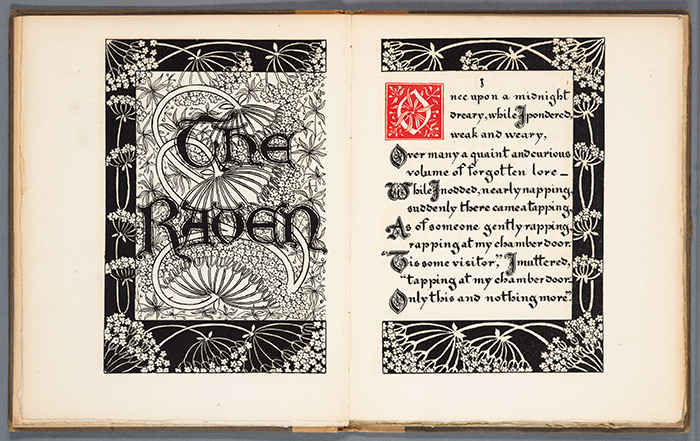 The
Raven
I
Once upon a midnight
dreary, while I pondered,
weak and weary,
Over many a quaint and curious
volume of forgotten lore—
While I nodded, nearly napping,
suddenly there came a tapping,
As of someone gently rapping,
rapping at my chamber door.
"Tis some visitor," I muttered,
"tapping at my chamber door—
Only this and nothing more."